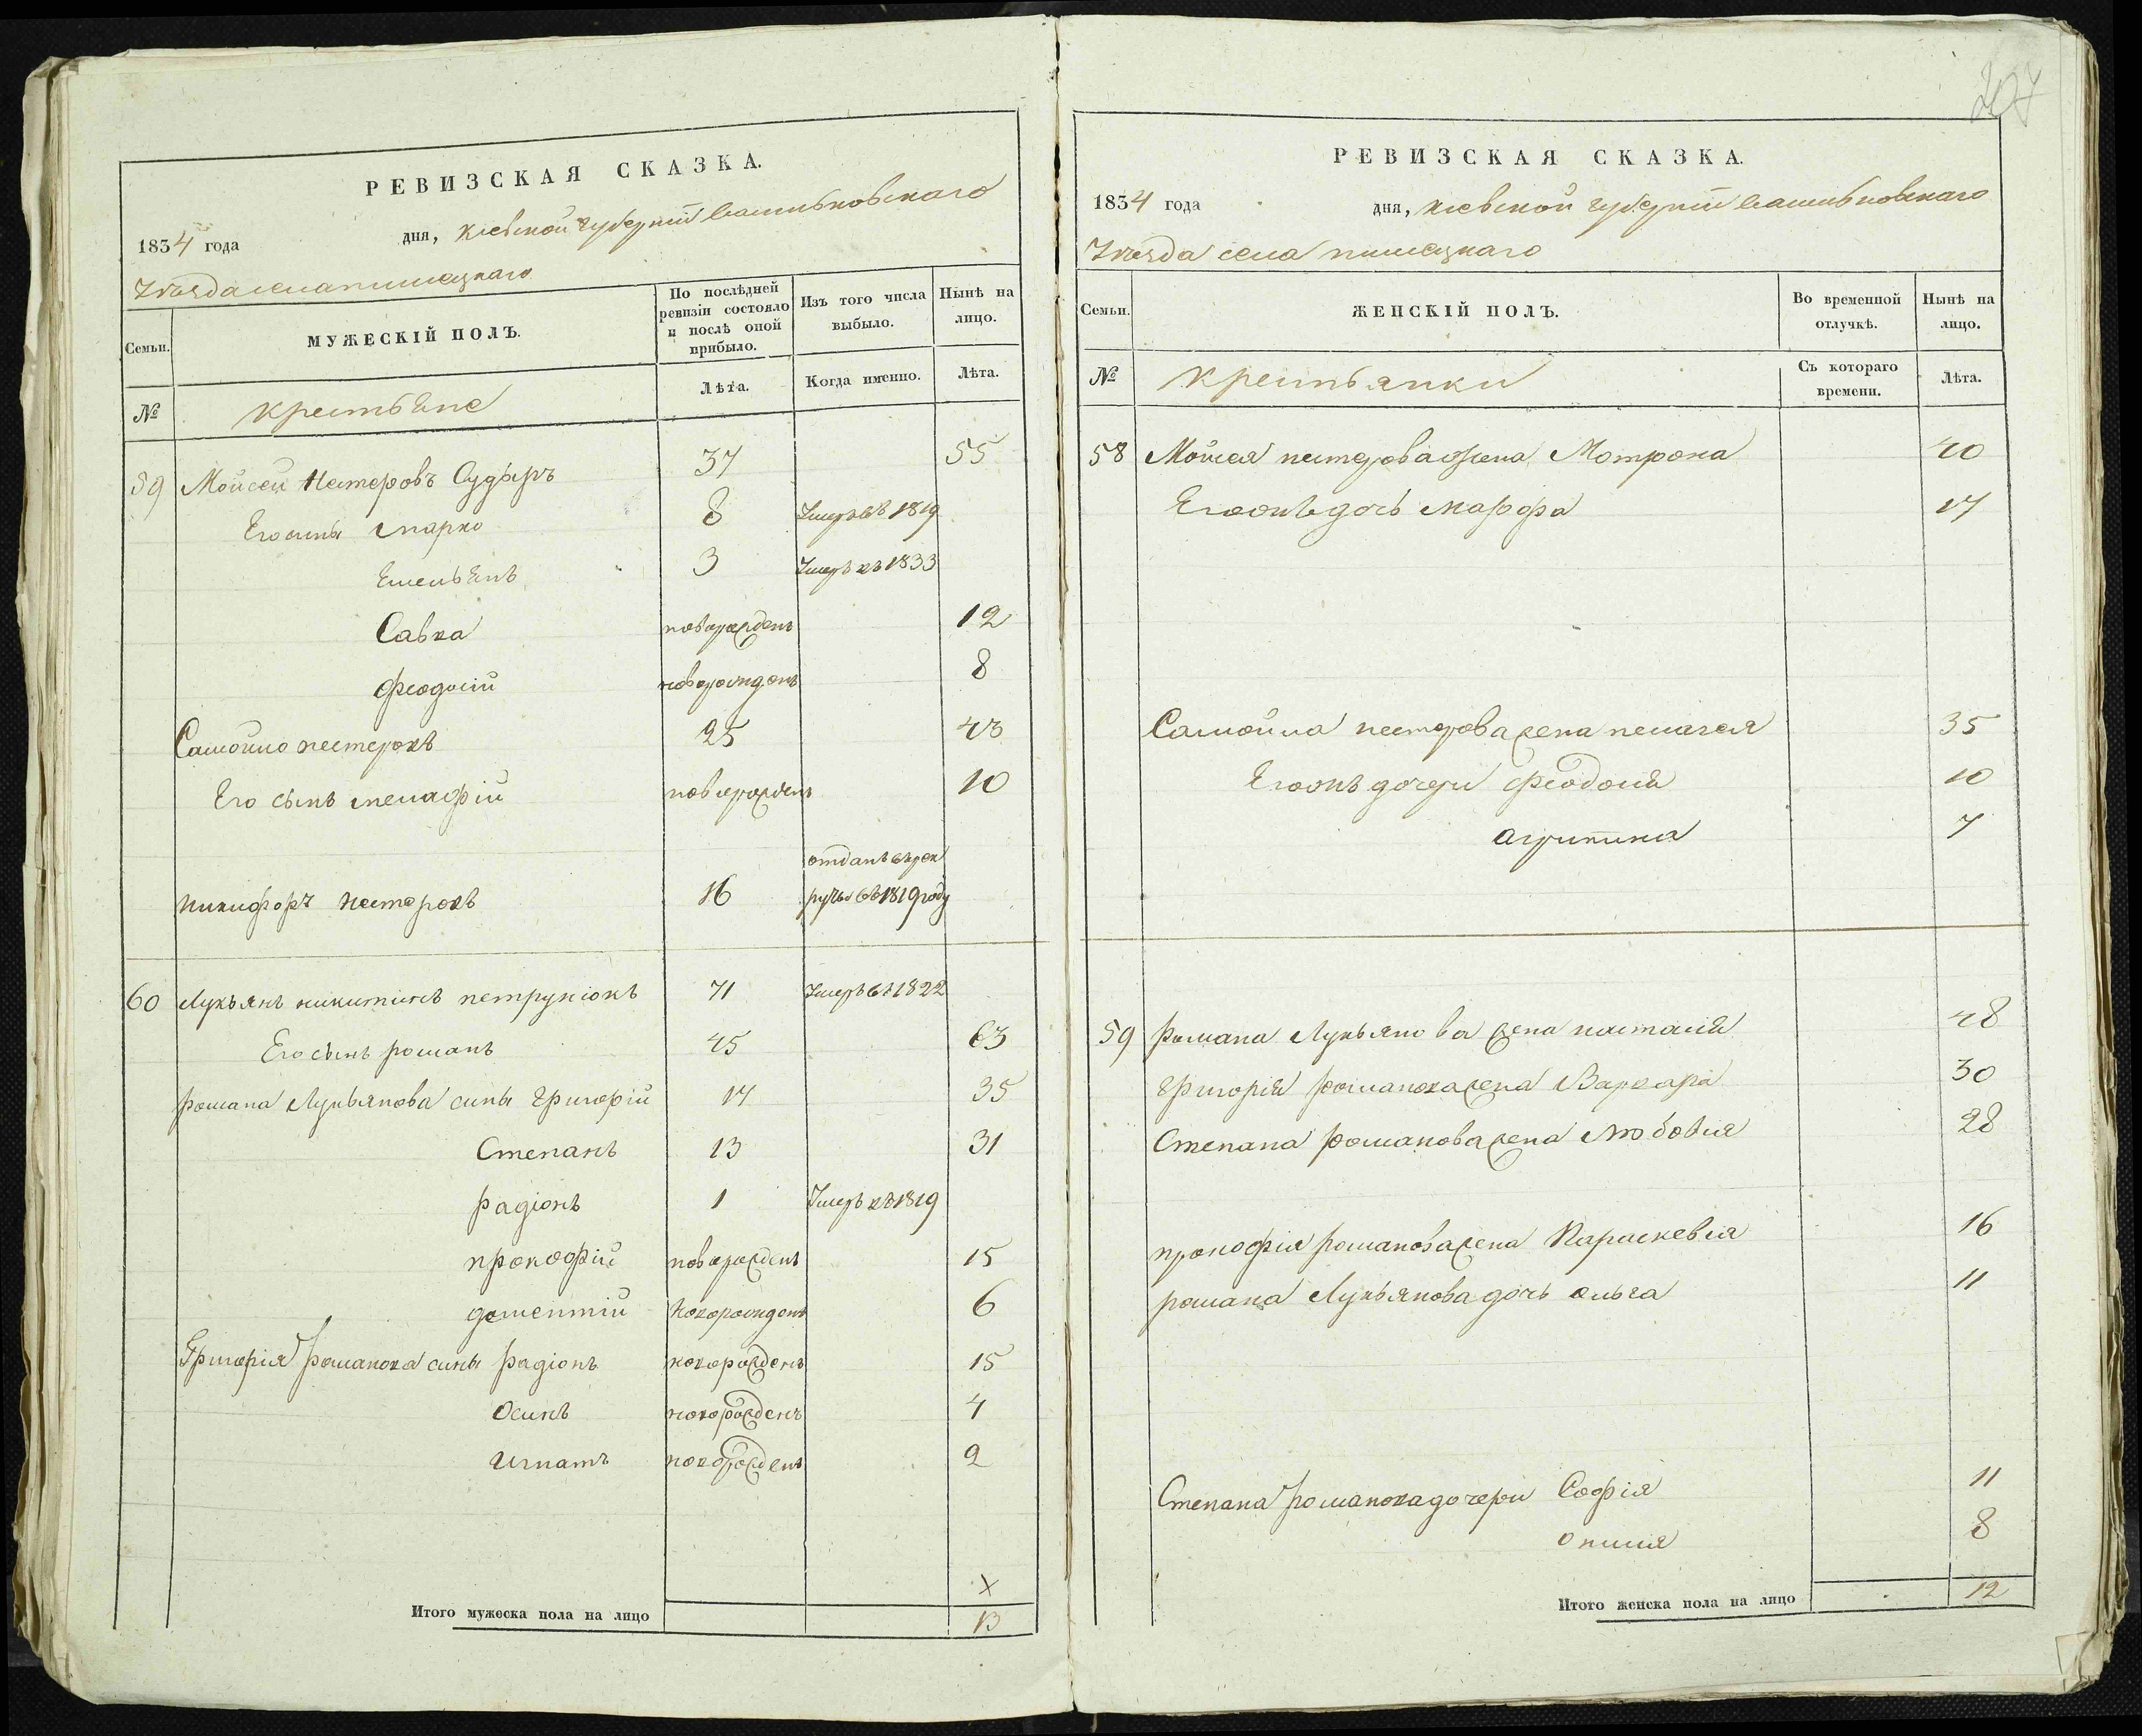 207
РЕВИЗСКАЯ СКАЗКА.
1834 года дня, Кіевской губерніи Васильковскаго
Уѣзда села
Семьи. МУЖЕСКІЙ ПОЛЪ. По послѣдней ревизіи состояло и послѣ оной прибыло. Изъ того числа выбыло. Нынѣ на лицо.
№ крестьяне Лѣта. Когда именно. Лѣта.
59 Мойсей Нестеровъ Сударь 37 55
Его сыны Марко 8 Умеръ въ 1819
Емельянъ 3 Умеръ въ 1833
Савка новорожденъ 12
Феодосій новорожденъ 8
Самойло нестеровъ 25 43
Его сынъ мелафій новорожденъ 10
отданъ въ рек
никифоръ нестеровъ 16 руты въ 1819 году
60 Лукьянъ никитинъ петрунюкъ 71 Умеръ въ 1822
Его сынъ романъ 45 63
романа Лукьянова сыны григорій 17 35
Степанъ 13 31
радіонъ 1 Умеръ въ 1819
прокофій новорожденъ 15
дементій новорожденъ 6
Григорія романова сыны радіонъ новорожденъ 15
Осипъ новорожденъ 4
Игнатъ новорожденъ 2
x
Итого мужеска пола на лицо 13
РЕВИЗСКАЯ СКАЗКА.
1834 года дня, Кіевской губерніи Васильковскаго
Уѣзда села
Семьи. ЖЕНСКІЙ ПОЛЪ. Во временной отлучкѣ. Нынѣ на лицо.
№ крестьянки Съ котораго времени. Лѣта.
58 Мойсея нестерова жена Мотрона 40
Его онъ дочь марфа 17
Самойла нестерова жена пелагея 35
Его онъ дочери феодосія 10
агрипина 7
59 романа Лукьянова жена настасія 48
григорія романова жена Варвара 30
Степана романова жена Любовія 28
прокофія романова жена Параскевія 16
романа Лукьянова дочь ольга 11
Степана романова дочери Софія 11
8
Итого женска пола на лицо 12